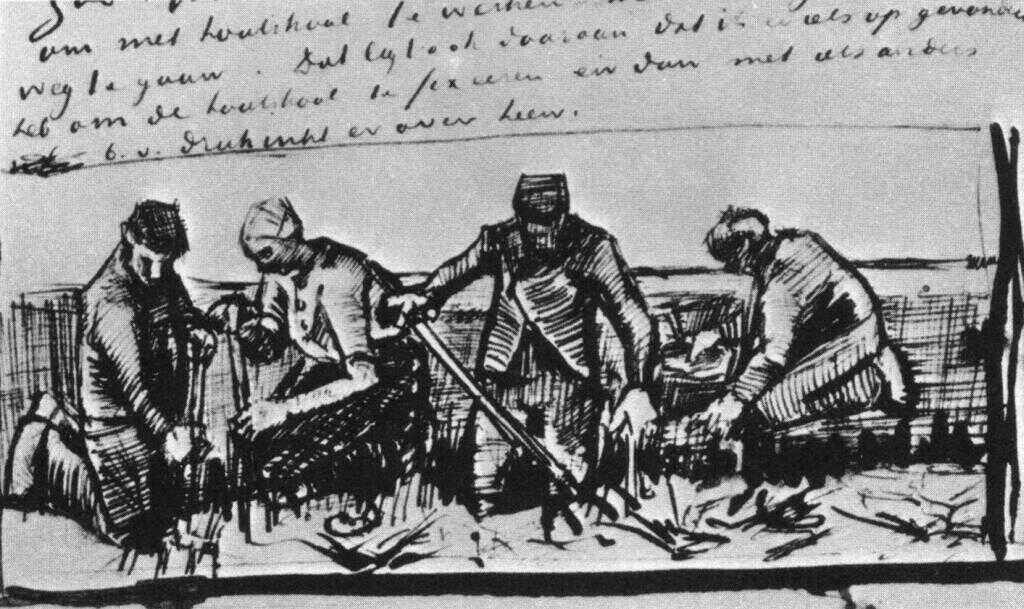 om met houtskool te werken
weg te gaan. Dat ligt ook daaraan dat ik iets op gevonden
heb om de houtskool te fixeeren en dan met iets anders
b.v. drukinkt er over heen.